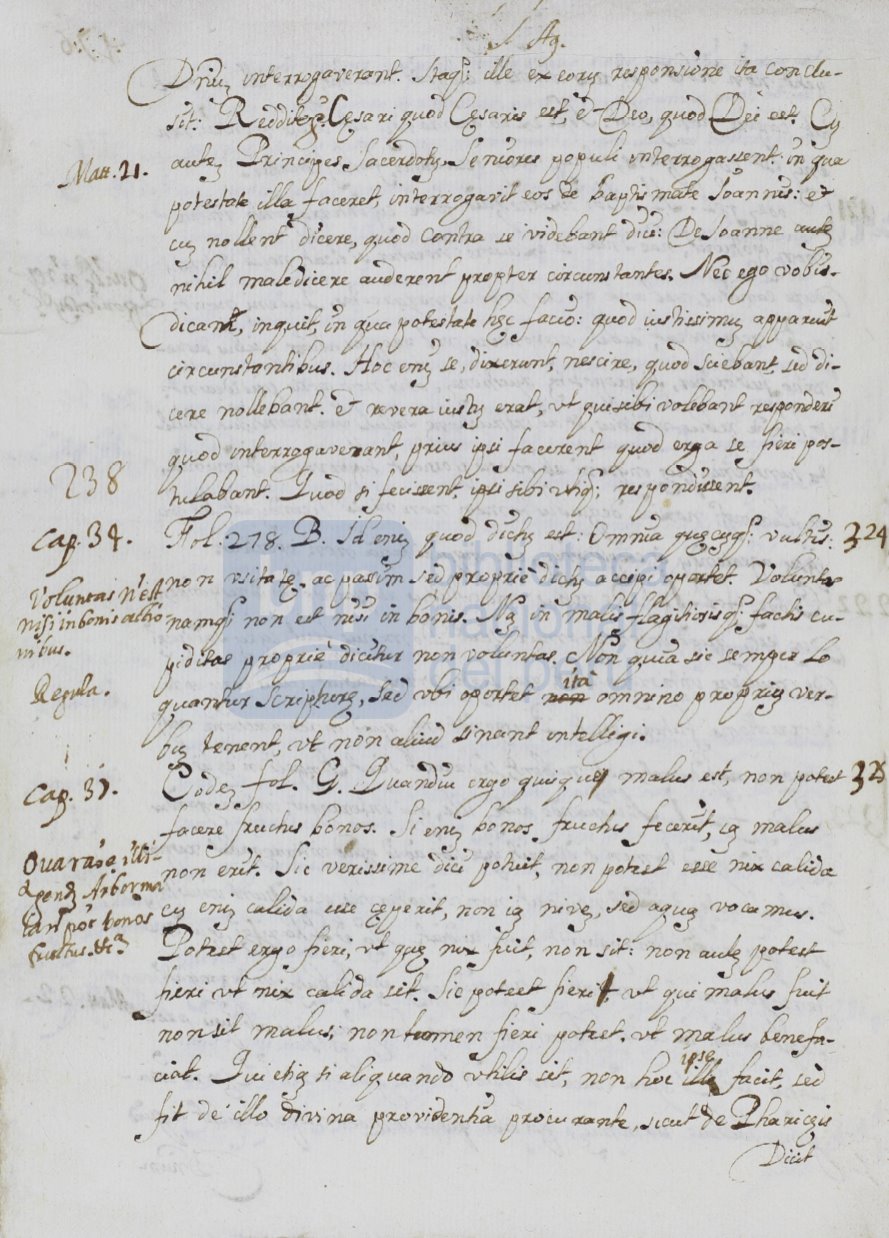 S. Ag.
Dniũ interrogaverant. Itaq; ille ex eorũ responsione ita conclu-
sit: Reddite, Cęsari quod Cęsaris est, et Deo, quod Dei est. Cũ
Matt. 21.
autẽ Principes Sacerdotũ, Seniores populi interrogassent: in qua
potestate illa faceret, interrogavit eos de baptismate Ioannis: et
cũ nollent dicere, quod contra se videbant dici: De Ioanne autẽ
nihil maledicere auderent propter circunstantes. Nec ego vobis
dicam, inquit, in qua potestate hęc facio: quod iustissimũ apparuit
circunstantibus. Hoc enĩ se, dixerunt, nescire, quod sciebant, sed di-
cere nollebant. et revera iustũ erat, vt qui sibi volebant responderi
quod interrogaverant, prius ipsi facerent quod erga se fieri pos-
238
tulabant. Quod si fecissent, ipsi sibi vtiq; respondissent.
Cap. 34.
Fol. 278. B. Id enĩ quod dictũ est: Omnia quęcũq; vultis: 324
Voluntas n̄ est
nisi in bonis actio-
nibus.
non vsitatę, ac passim sed proprie dictũ accipi oportet. Voluntas
namq; non est nisi in bonis. Nã in malis flagitiosisq; factis cu-
piditas proprie dicitur non voluntas. Non quia sic semper lo
Regula.
quantur Scripturę, sed vbi oportet non ita omnino propriũ ver-
bũ tenent, vt non aliud sinant intelligi.
Cap. 37.
Eodẽ fol. G. Quandiu ergo quisque malus est, non potest 325
facere fructus bonos. Si enĩ bonos fructus fecerit, iã malus
Arbor ma
bonos
fructus. &c.
non erit. Sic verissime dici potuit, non potest esse nix calida
cũ enĩ calida esse cęperit, non iã nivẽ, sed aquã vocamus.
Potest ergo fieri, vt quę nix fuit, non sit: non autẽ potest
fieri vt nix calida sit. Sic potest fieri vt qui malus fuit
non sit malus; non tamen fieri potest, vt malus benefa-
ciat. Qui etiã si aliquando vtilis sit, non hoc ille ipse facit, sed
fit de illo divina providentia procurante, sicut de Pharisęis
Dicit
biblioteca
nacional
del perú